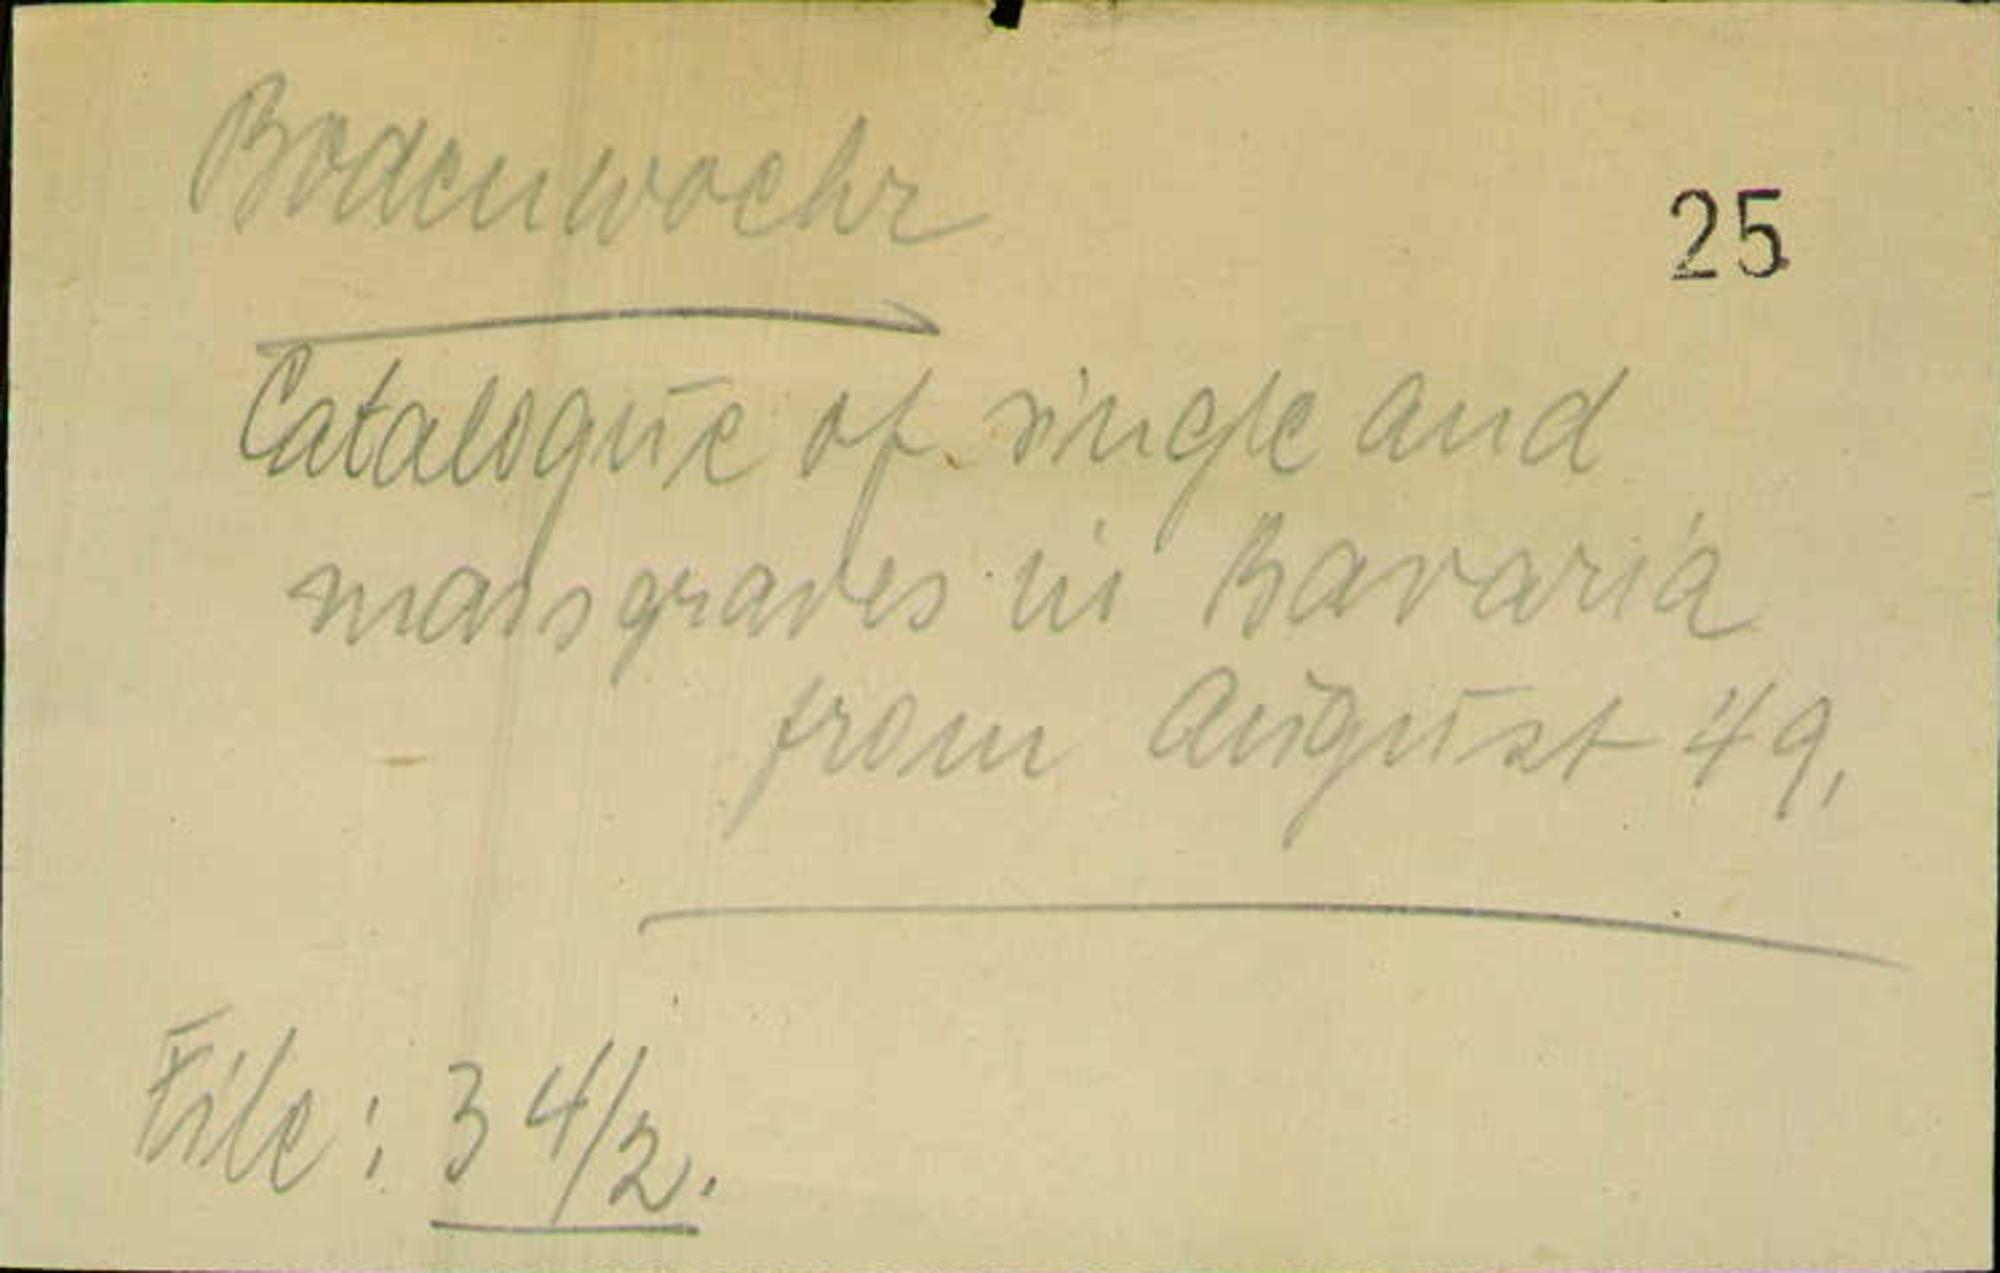 Bodenwoehr
25
Catalogue of single and
massgraves in Bavaria
from August 49,
File: 34/2.